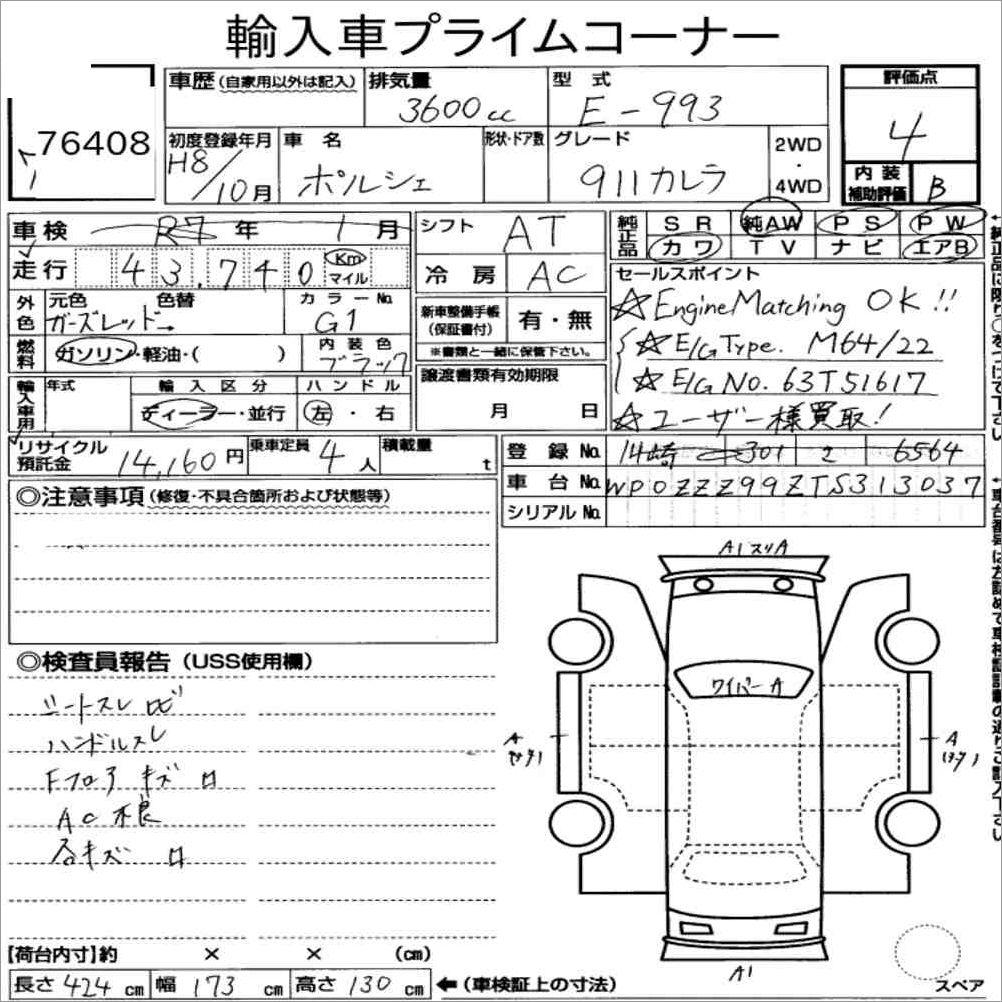 輸入車プライムコーナー
76408
車歴(自家用以外は記入) 排気量 3600cc 型式 E-993
評価点 4
初度登録年月 H8/10月 車名 ポルシェ 形状・ドア数 グレード 911カレラ 2WD・4WD
内装補助評価 B
車検 R7年 1月 シフト AT
純正品 SR 純AW PS PW
カワ TV ナビ エアB
走行 43,740 Km マイル 冷房 AC
セールスポイント
☆EngineMatching OK!!
☆E/G Type. M64/22
☆E/G No. 63T51617
☆ユーザー様買取!
外色 元色 ガーズレッド 色替 → カラーNo. G1
新車整備手帳(保証書付) 有・無
※書類と一緒に保管下さい。
燃料 ガソリン・軽油・( ) 内装色 ブラック
譲渡書類有効期限
月 日
輸入車用 年式 輸入区分 ハンドル
ディーラー・並行 左・右
リサイクル預託金 14,160円 乗車定員 4人 積載量 t
登録No. 301 6564
車台No. WP0ZZZ99ZTS313037
シリアルNo.
◎注意事項(修復・不具合箇所および状態等)
◎検査員報告(USS使用欄)
シートスレ
ハンドルスレ
Fフロア キズ ロ
AC不良
石キズ ロ
A1 スリA
ワイパーA
A
A
A1
スペア
【荷台内寸】約 × × (cm)
長さ 424 cm 幅 173 cm 高さ 130 cm ←(車検証上の寸法)